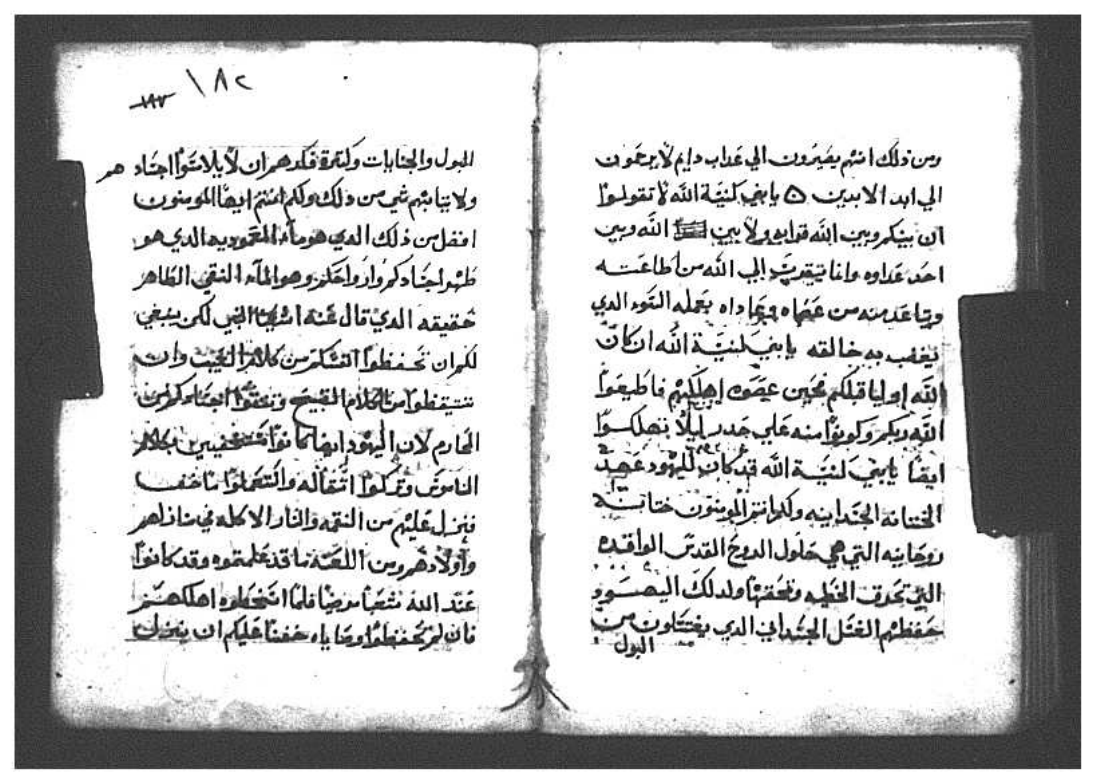 ومن ذلك انهم يصيرون الي عداب دايم لا يرحمون
الي ابد الابدين ه يا بني كنيسة الله لا تقولوا
ان بينكم وبين الله قرابه ولا بين الله وبين
احد عداوه وانما يتقرب الي الله من اطاعته
ويتباعد منه من عصاه بعمله السوء الدي
يغضب به خالقه يا بني كنيسة الله ان كان
الله اوليا قبلكم فحين عصوه اهلكهم فاطيعوا
الله ربكم وكونوا منه علي حدر ليلا تهلكوا
ايضا يا بني كنيسة الله قد كان لليهود عهد
الختانه الجسدانيه ولكم انتم المومنون ختانة
روحانيه التي هي حلول الروح القدس الواقده
التي تحرق الخطيه وتحقها ولدلك اليهود
حفظهم الغسل الجسداني الدي يغتسلون من
البول
١٨٢
١٨٢
البول والجنابات وكثرة فكدهم ان لا يلامسوا اجساد هم
ولا ثيابهم شي من ذلك ولكم انتم ايضا المومنون
افضل من ذلك الدي هو مآء المعموديه الدي هو
طهر اجسادكم وارواحكم وهو المآء النقي الطاهر
حقيقه الدي قال عنه اشعيا النبي لكن ينبغي
لكم ان تحفظوا السنتكم من كلام العيب وان
تتيقظوا من الكلام القبيح وتعفوا اجسادكم من
المحارم لان اليهود ايضا كانوا مستخفين بكلام
الناموس وتركوا اثقاله واستعملوا ما خف
فنزل عليهم من النقمه والنار الاكله في منازلهم
واولادهم ومن اللعنة ما قد علمتموه وقد كانوا
عند الله شعبا مرضيا فلما اسخطوه اهلكهم
فان لم تحفظوا وصاياه خفنا عليكم ان ينزل